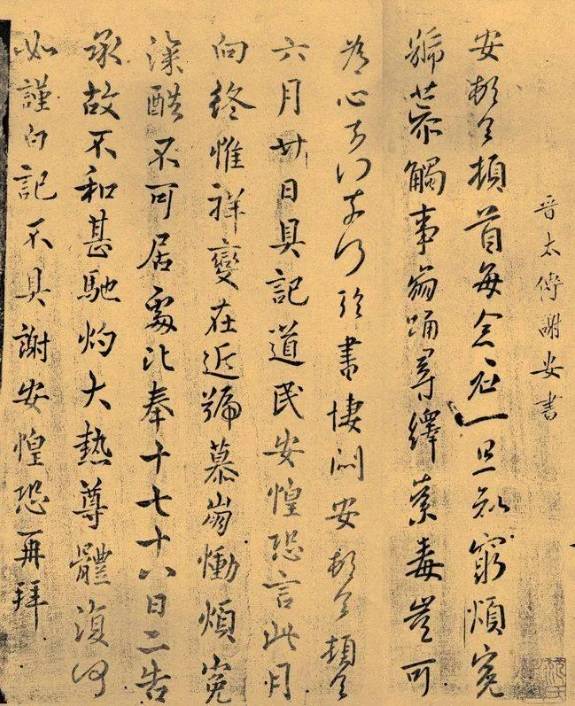 晋太傅謝安書
安頓首頓首每念君一旦知窮煩冤
號慕觸事崩踊尋繹荼毒豈可
為心奈何奈何臨書悽悶安頓首頓首
六月廿日具記道民安惶恐言此月
向終惟祥變在近號慕崩慟煩冤
深酷不可居處比奉十七十八日二告
承故不和甚馳灼大熱尊體復何
如謹白記不具謝安惶恐再拜